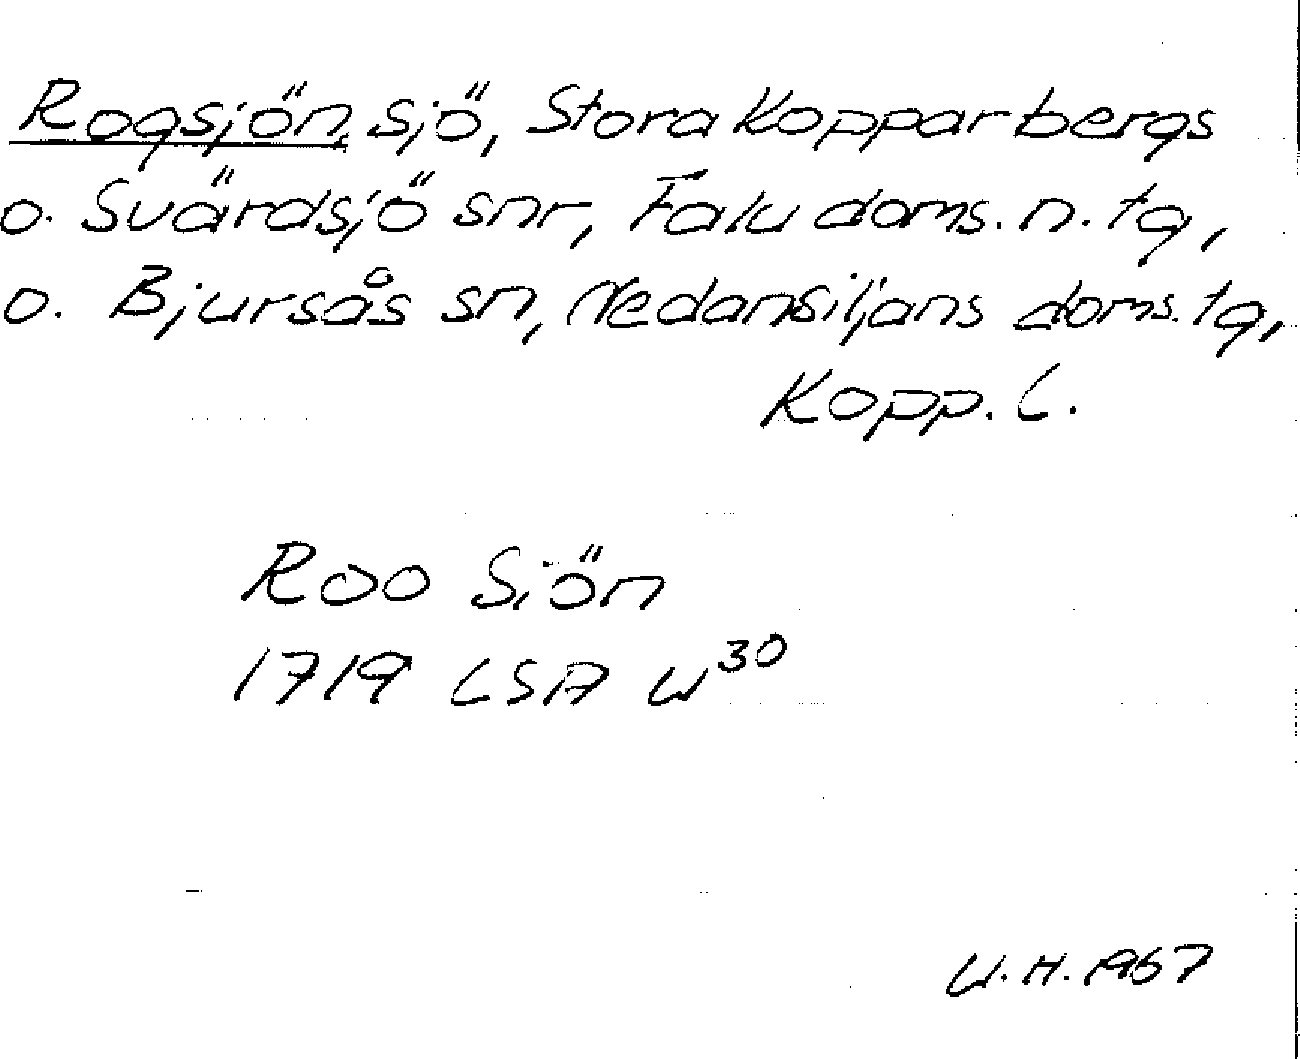 Rogsjön, sjö, Stora Kopparbergs
o. Svärdsjö snr, Falu doms. n. tg,
o. Bjursås sn, Nedansiljans doms. tg,
Kopp. L.
Roo Siön
1719 LSA W30
W.H. 1967